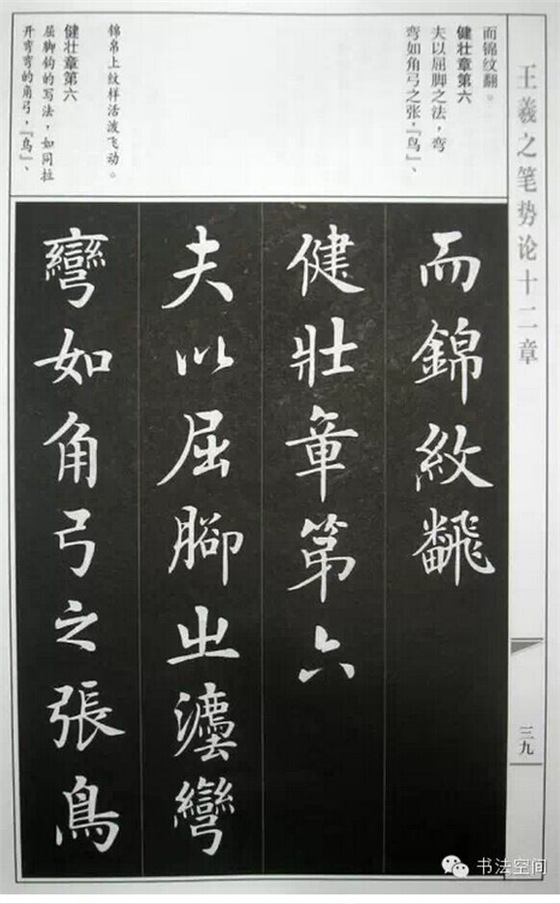 王羲之笔势论十二章
三九
而锦纹翻。
健壮章第六
夫以屈脚之法，弯
弯如角弓之张，『鸟』、
锦帛上纹样活泼飞动。
健壮章第六
屈脚钩的写法，如同拉
开弯弯的角弓，『鸟』、
而錦紋飜
健壯章第六
夫以屈腳㞢灋彎
彎如角弓之張鳥
书法空间